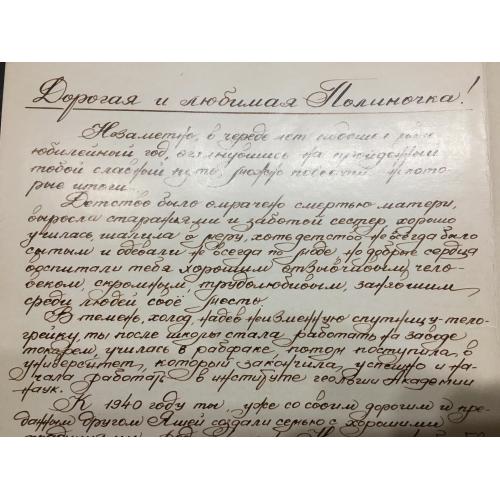 Дорогая и любимая Полиночка!
Незаметно, в череде лет подошел твой
юбилейный год, оглянувшись на пройденный
тобой славный путь, можно подвести некото-
рые итоги.
Детство было омрачено смертью матери,
выросла стараниями и заботой сестер, хорошо
училась, шалила в меру, хоть детство не всегда было
сытым и одевали не всегда по моде, но добрые сердца
воспитали тебя хорошим отзывчивым, чело-
веком, скромным, трудолюбивым, занявшим
среди людей своё место.
В темень, холод, надев неизменную спутницу-тело-
грейку, ты после школы стала работать на заводе
токарем, училась в рабфаке, потом поступила, в
университет, который закончила, успешно и на-
чала работать в институте геологии Академии
наук.
К 1940 году ты, уже со своим дорогим и пре-
данным другом Яшей создали семью с хорошими